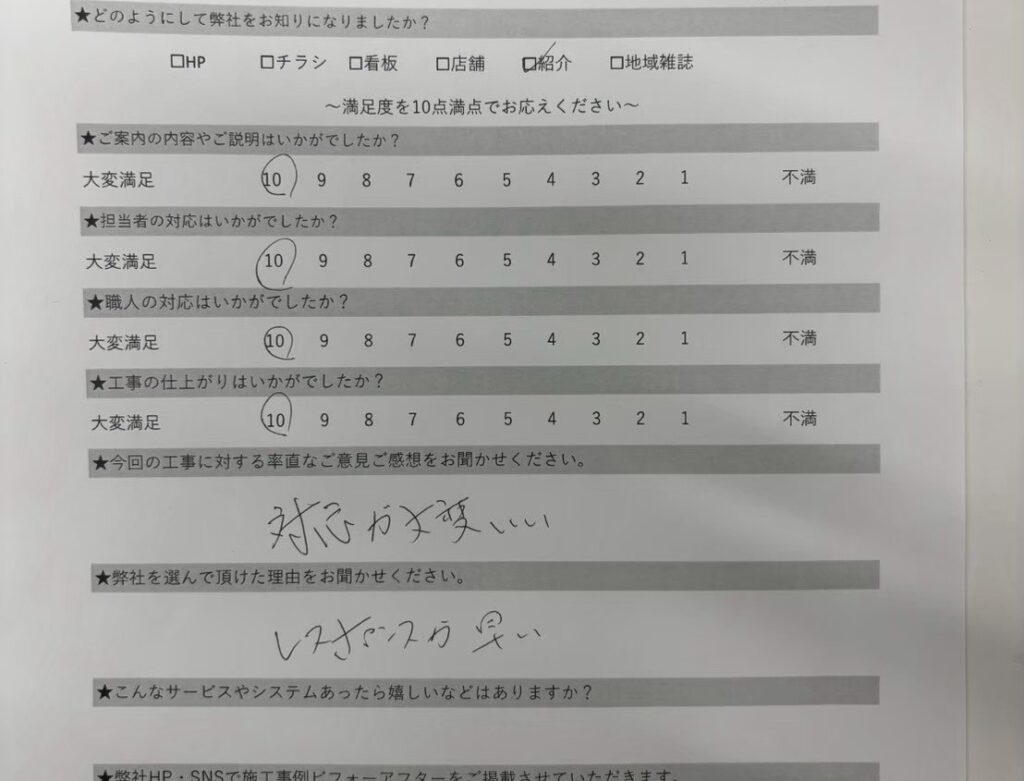 ★どのようにして弊社をお知りになりましたか？
□HP □チラシ □看板 □店舗 ☑紹介 □地域雑誌
～満足度を10点満点でお応えください～
★ご案内の内容やご説明はいかがでしたか？
大変満足 10 9 8 7 6 5 4 3 2 1 不満
★担当者の対応はいかがでしたか？
大変満足 10 9 8 7 6 5 4 3 2 1 不満
★職人の対応はいかがでしたか？
大変満足 10 9 8 7 6 5 4 3 2 1 不満
★工事の仕上がりはいかがでしたか？
大変満足 10 9 8 7 6 5 4 3 2 1 不満
★今回の工事に対する率直なご意見ご感想をお聞かせください。
対応が大変いい
★弊社を選んで頂けた理由をお聞かせください。
レスポンスが早い
★こんなサービスやシステムあったら嬉しいなどはありますか？
★弊社HP・SNSで施工事例ビフォーアフターをご掲載させていただきます。